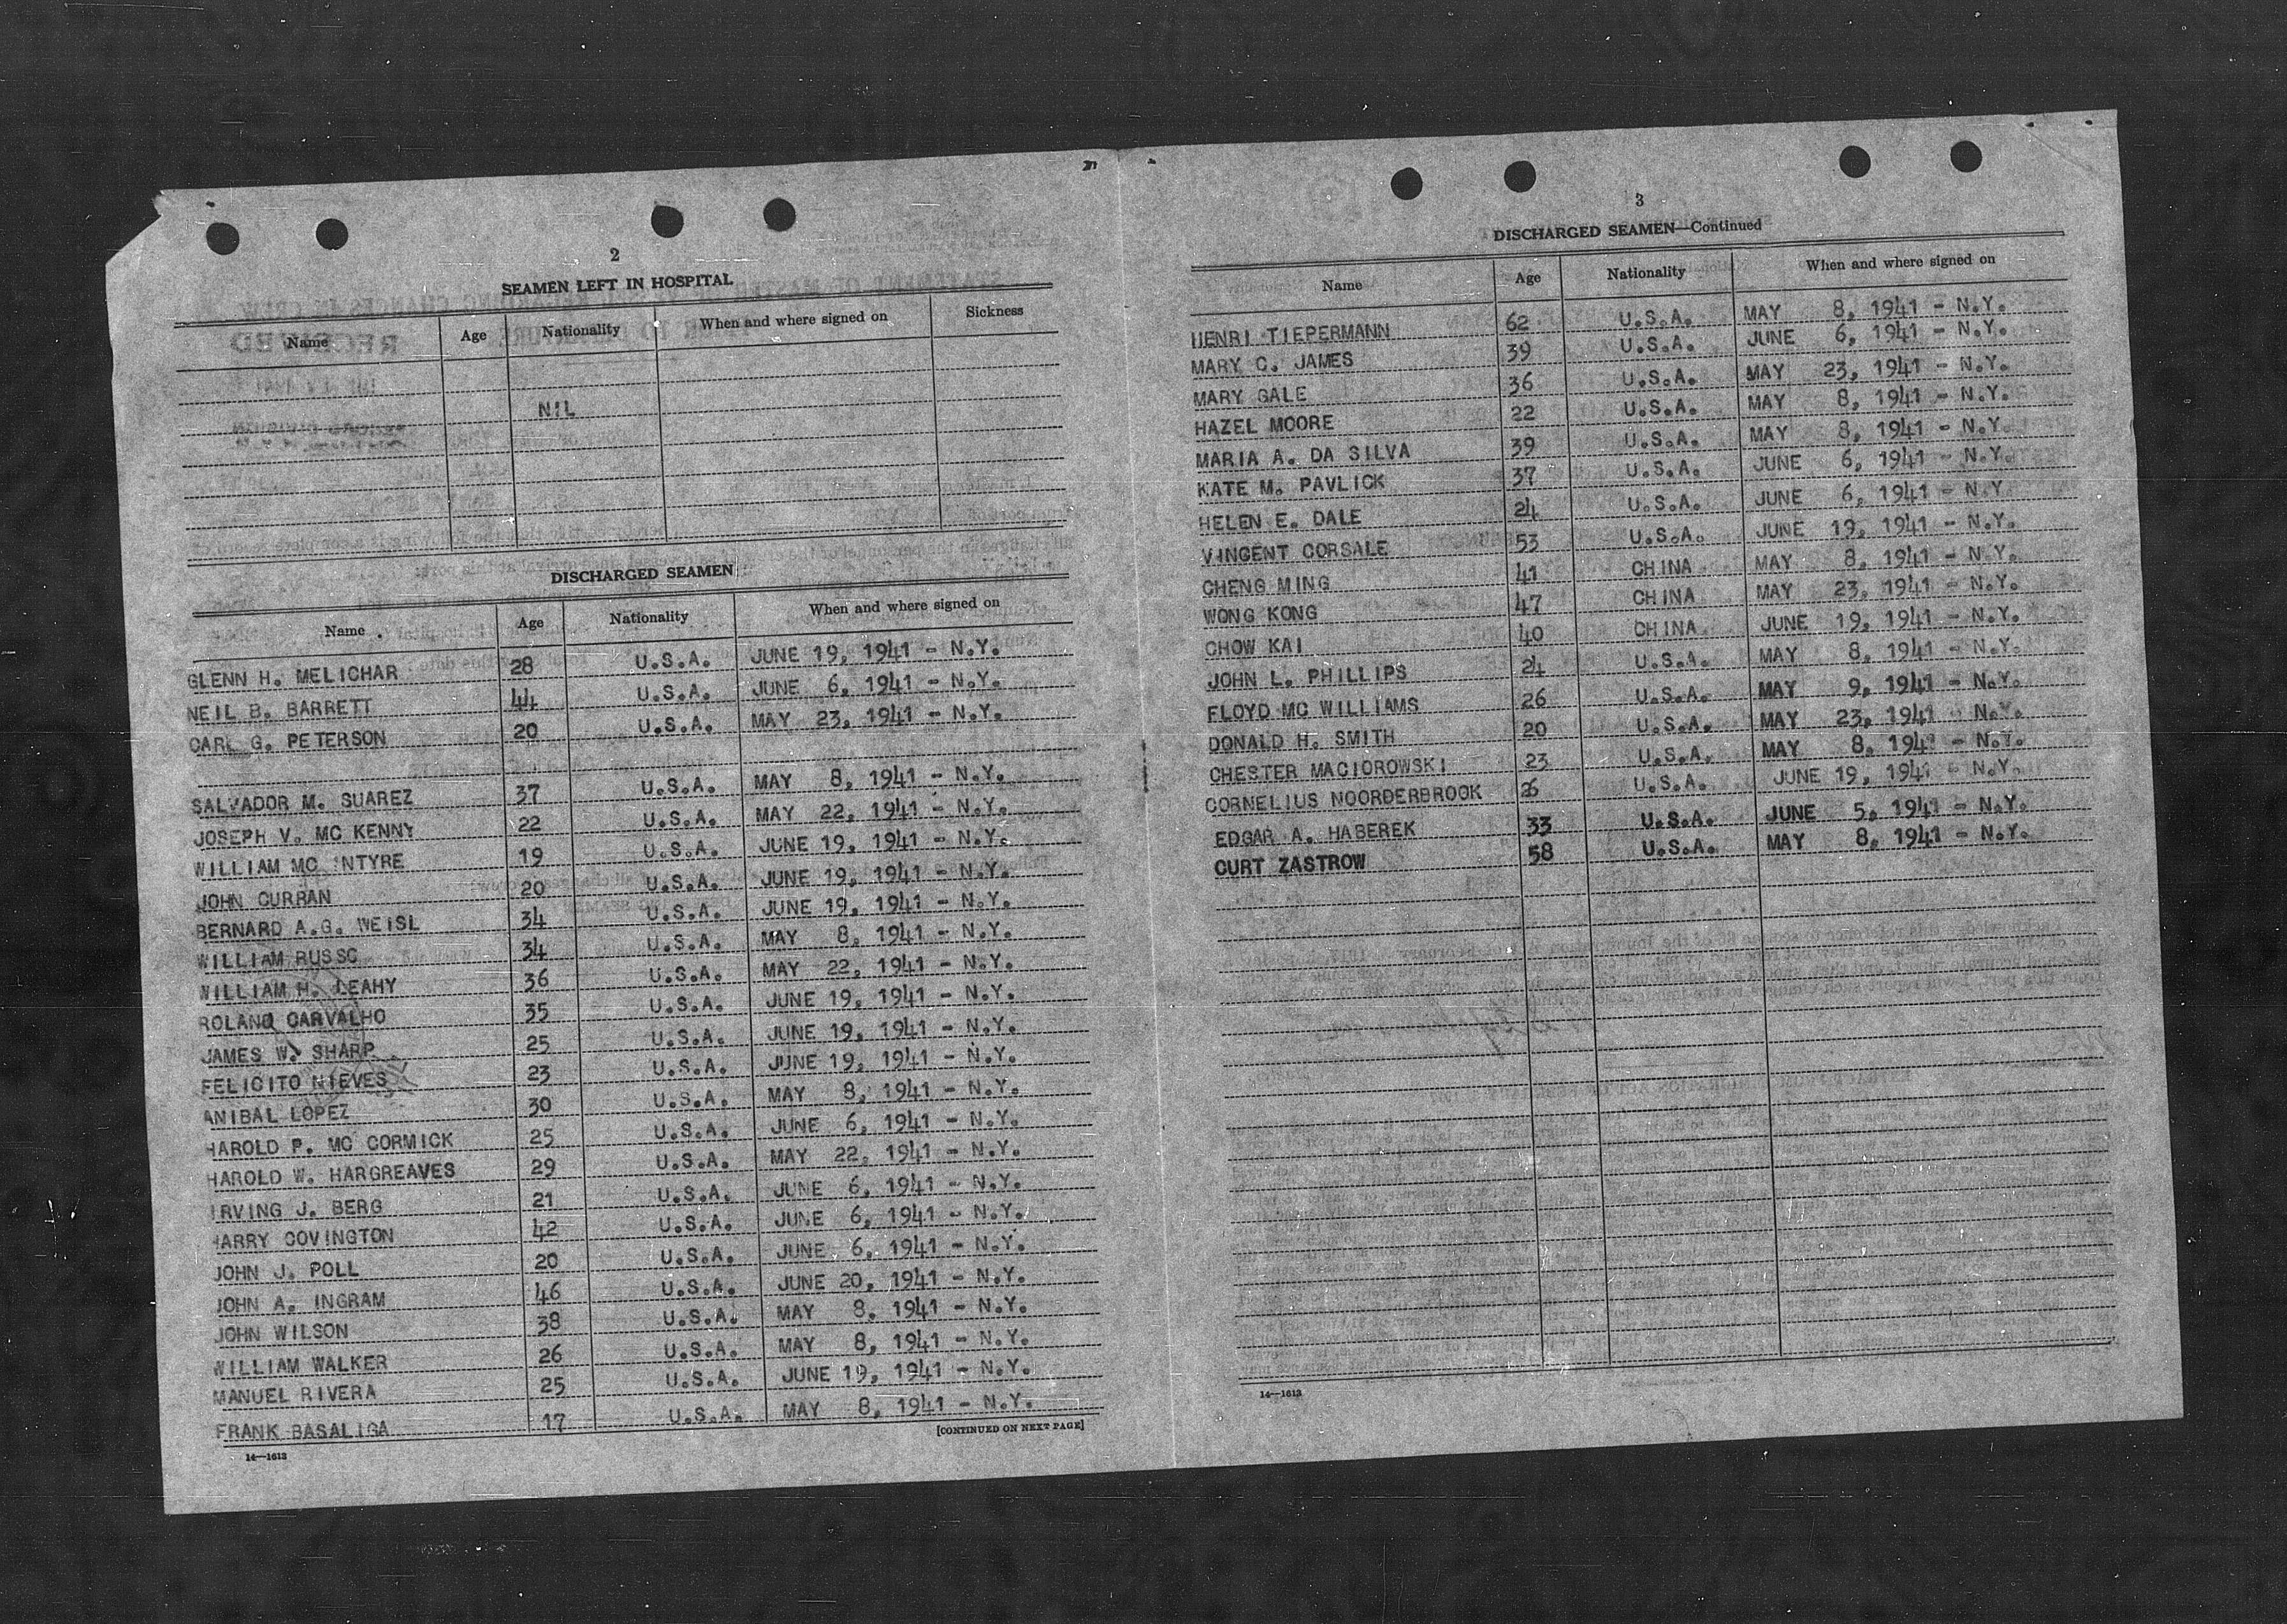 2
SEAMEN LEFT IN HOSPITAL
Name Age Nationality When and where signed on Sickness
NIL
DISCHARGED SEAMEN
Name Age Nationality When and where signed on
GLENN H. MELICHAR 28 U.S.A. JUNE 19, 1941 - N.Y.
NEIL B. BARRETT 44 U.S.A. JUNE 6, 1941 - N.Y.
CARL G. PETERSON 20 U.S.A. MAY 23, 1941 - N.Y.
SALVADOR M. SUAREZ 37 U.S.A. MAY 8, 1941 - N.Y.
JOSEPH V. MC KENNY 22 U.S.A. MAY 22, 1941 - N.Y.
WILLIAM MC INTYRE 19 U.S.A. JUNE 19, 1941 - N.Y.
JOHN CURRAN 20 U.S.A. JUNE 19, 1941 - N.Y.
BERNARD A.G. WEISL 34 U.S.A. JUNE 19, 1941 - N.Y.
WILLIAM RUSSO 34 U.S.A. MAY 8, 1941 - N.Y.
WILLIAM H. LEAHY 36 U.S.A. MAY 22, 1941 - N.Y.
ROLAND CARVALHO 35 U.S.A. JUNE 19, 1941 - N.Y.
JAMES W. SHARP 25 U.S.A. JUNE 19, 1941 - N.Y.
FELICITO NIEVES 23 U.S.A. JUNE 19, 1941 - N.Y.
ANIBAL LOPEZ 30 U.S.A. MAY 8, 1941 - N.Y.
HAROLD P. MC CORMICK 25 U.S.A. JUNE 6, 1941 - N.Y.
HAROLD W. HARGREAVES 29 U.S.A. MAY 22, 1941 - N.Y.
IRVING J. BERG 21 U.S.A. JUNE 6, 1941 - N.Y.
HARRY COVINGTON 42 U.S.A. JUNE 6, 1941 - N.Y.
JOHN J. POLL 20 U.S.A. JUNE 6, 1941 - N.Y.
JOHN A. INGRAM 46 U.S.A. JUNE 20, 1941 - N.Y.
JOHN WILSON 38 U.S.A. MAY 8, 1941 - N.Y.
WILLIAM WALKER 26 U.S.A. MAY 8, 1941 - N.Y.
MANUEL RIVERA 25 U.S.A. JUNE 19, 1941 - N.Y.
FRANK BASALIGA 17 U.S.A. MAY 8, 1941 - N.Y.
[CONTINUED ON NEXT PAGE]
14—1613
3
DISCHARGED SEAMEN—Continued
Name Age Nationality When and where signed on
HENRI TIEPERMANN 62 U.S.A. MAY 8, 1941 - N.Y.
MARY C. JAMES 39 U.S.A. JUNE 6, 1941 - N.Y.
MARY GALE 36 U.S.A. MAY 23, 1941 - N.Y.
HAZEL MOORE 22 U.S.A. MAY 8, 1941 - N.Y.
MARIA A. DA SILVA 39 U.S.A. MAY 8, 1941 - N.Y.
KATE M. PAVLICK 37 U.S.A. JUNE 6, 1941 - N.Y.
HELEN E. DALE 24 U.S.A. JUNE 6, 1941 - N.Y.
VINCENT CORSALE 53 U.S.A. JUNE 19, 1941 - N.Y.
CHENG MING 41 CHINA MAY 8, 1941 - N.Y.
WONG KONG 47 CHINA MAY 23, 1941 - N.Y.
CHOW KAI 40 CHINA JUNE 19, 1941 - N.Y.
JOHN L. PHILLIPS 24 U.S.A. MAY 8, 1941 - N.Y.
FLOYD MC WILLIAMS 26 U.S.A. MAY 9, 1941 - N.Y.
DONALD H. SMITH 20 U.S.A. MAY 23, 1941 - N.Y.
CHESTER MACIOROWSKI 23 U.S.A. MAY 8, 1941 - N.Y.
CORNELIUS NOORDERBROOK 26 U.S.A. JUNE 19, 1941 - N.Y.
EDGAR A. HABEREK 33 U.S.A. JUNE 5, 1941 - N.Y.
CURT ZASTROW 58 U.S.A. MAY 8, 1941 - N.Y.
14—1613